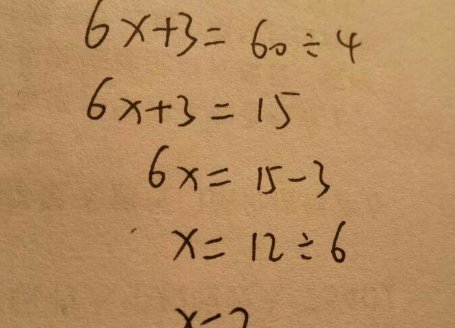 6x+3=60÷4
6x+3=15
6x=15-3
x=12÷6
x=2